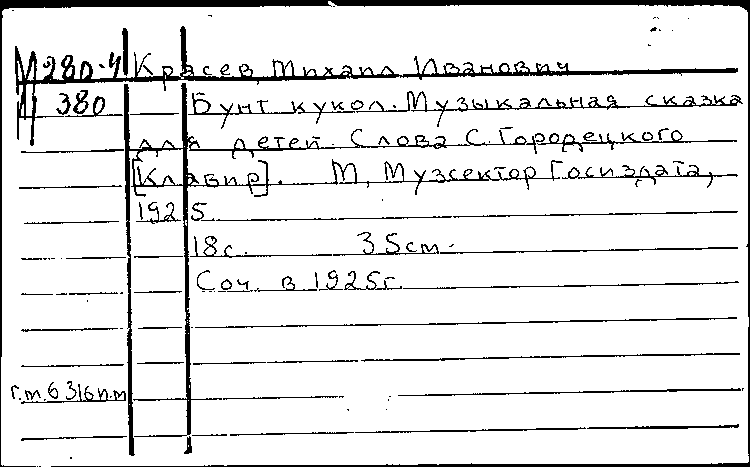 М 280-4 Красев, Михаил Иванович
380 Бунт кукол. Музыкальная сказка
для детей. Слова С. Городецкого
[Клавир]. М, Музсектор Госиздата,
1925.
18с. 35см.
Соч. в 1925г.
г.т. 6316 п.м